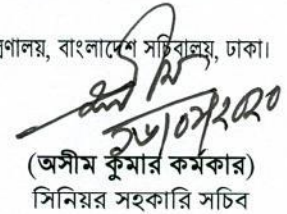 ণালয়, বাংলাদেশ সচিবালয়, ঢাকা।
(অসীম কুমার কর্মকার)
সিনিয়র সহকারি সচিব